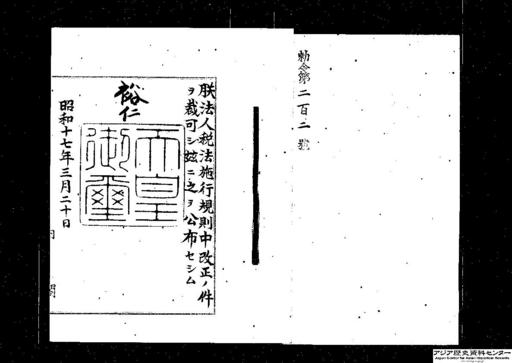 勅令第二百二號
朕法人税法施行規則中改正ノ件
ヲ裁可シ茲ニ之ヲ公布セシム
裕仁
天皇御璽
昭和十七年三月二十日
アジア歴史資料センター
Japan Center for Asian Historical Records